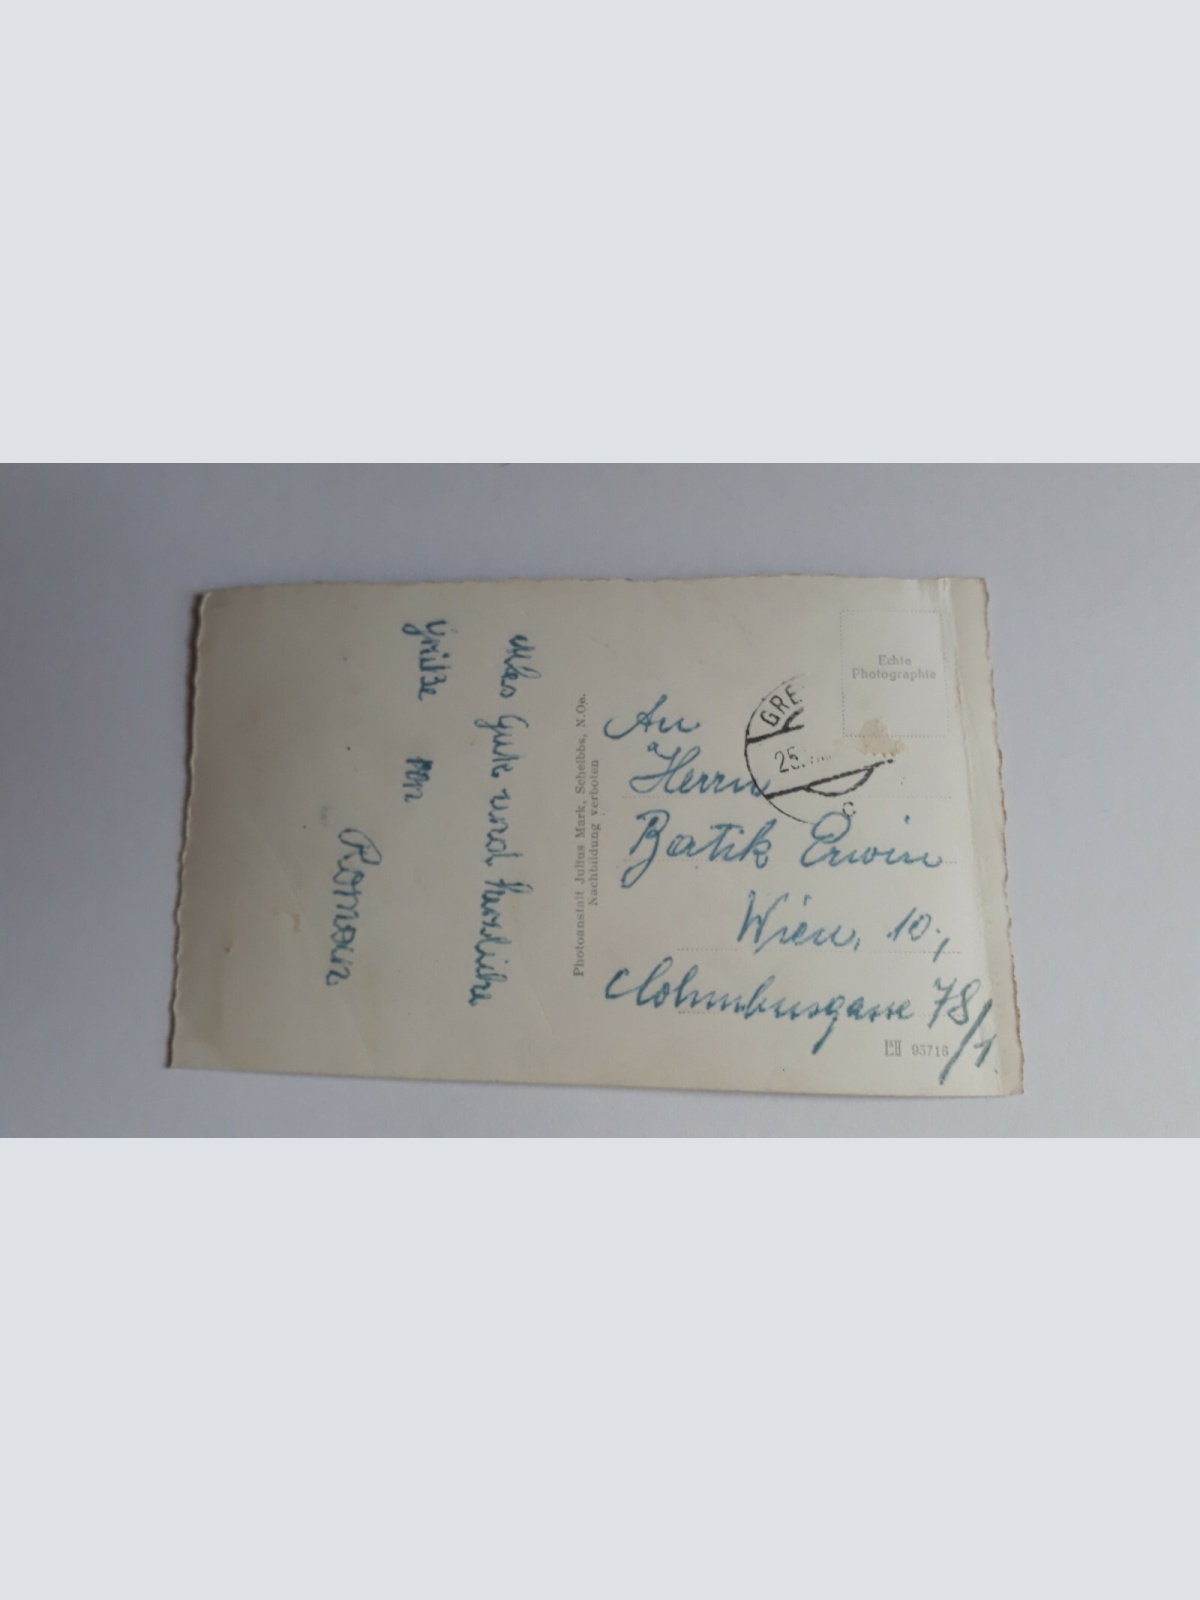 Alles Gute und herzliche
Grüße von
Roman
Photoanstalt Julius Mark, Scheibbs, N.Oe.
Nachbildung verboten
Echte
Photographie
GRE
25.
c
An
Herrn
Bartik Erwin
Wien, 10.,
Columbusgasse 78/1
95716